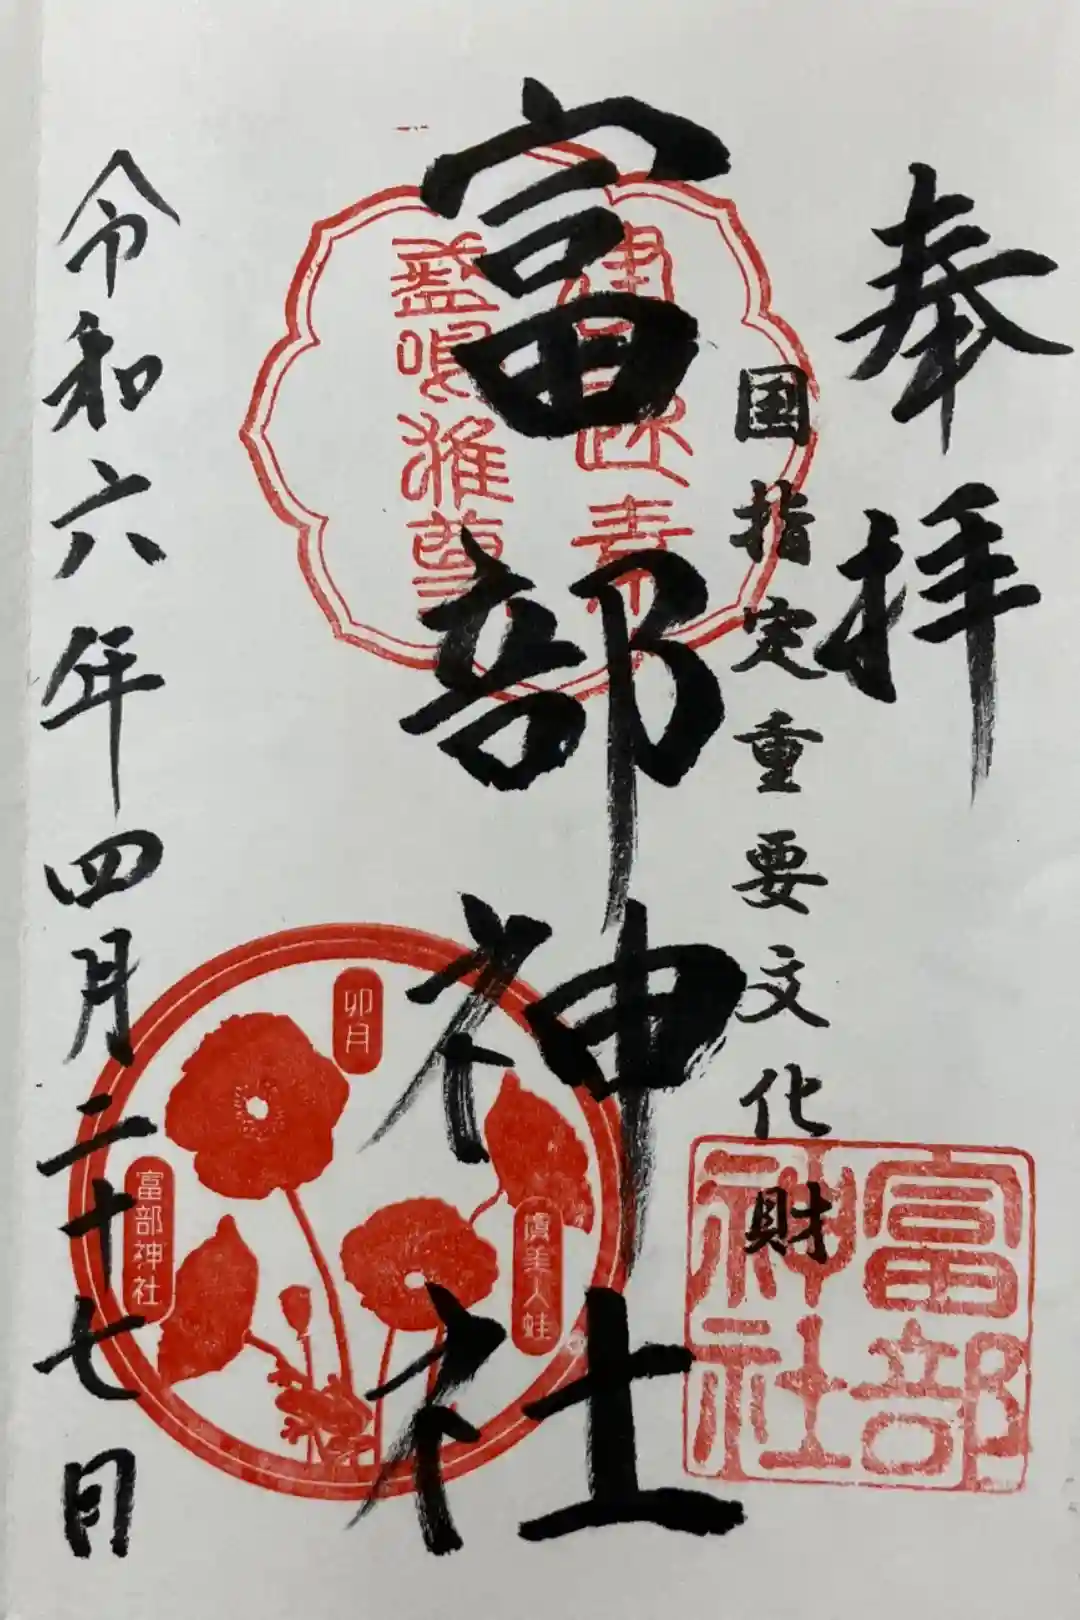 奉拝
国指定重要文化財
富部神社
令和六年四月二十七日
建速素
盞嗚雅尊
卯月
虞美人蛙
富部神社
富部
神社